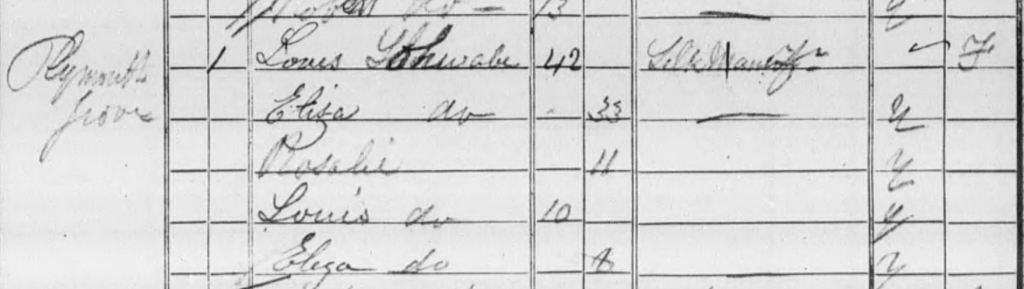 Robert do - 13 — Y
Plymouth 1 Louis Schwabe 42 Silk Manufr - F
Grove Elisa do - 33 — Y
Rosalie 11 Y
Louis do 10 Y
Eliza do 8 — Y